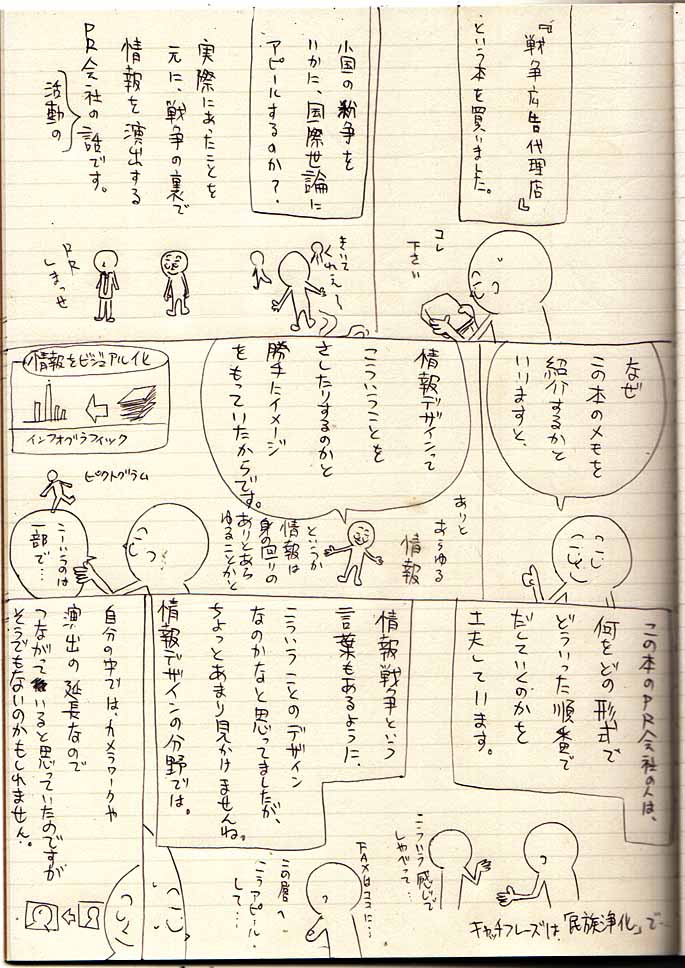 『戦争広告代理店』
という本を買いました。
コレ
下さい
小国の紛争を
いかに、国際世論に
アピールするのか?
きいて
くれえ〜
実際にあったことを
元に、戦争の裏で
情報を演出する
PR会社の話です。
活動の
PR
しまっせ
なぜ
この本のメモを
紹介するかと
いいますと、
情報デザインって
こういうことを
さしたりするのかと
勝手にイメージ
をもっていたからです。
ありと
あらゆる
情報
というか
情報は
身の回りの
ありとあら
ゆることかと
情報をビジュアル化
インフォグラフィック
ピクトグラム
こーいうのは
一部で…
この本のPR会社の人は、
何をどの形式で
どういった順番で
だしていくのかを
工夫しています。
こういう感じで
しゃべって…
キャッチフレーズは、「民族浄化」で…
情報戦争という
言葉もあるように、
こういうことのデザイン
なのかなと思ってましたが、
ちょっとあまり見かけませんね。
情報デザインの分野では。
FAXはココに…
この層へ
こうアピール
して…
自分の中では、カメラワークや
演出の延長なので
つながっていると思っていたのですが
そうでもないのかもしれません…。